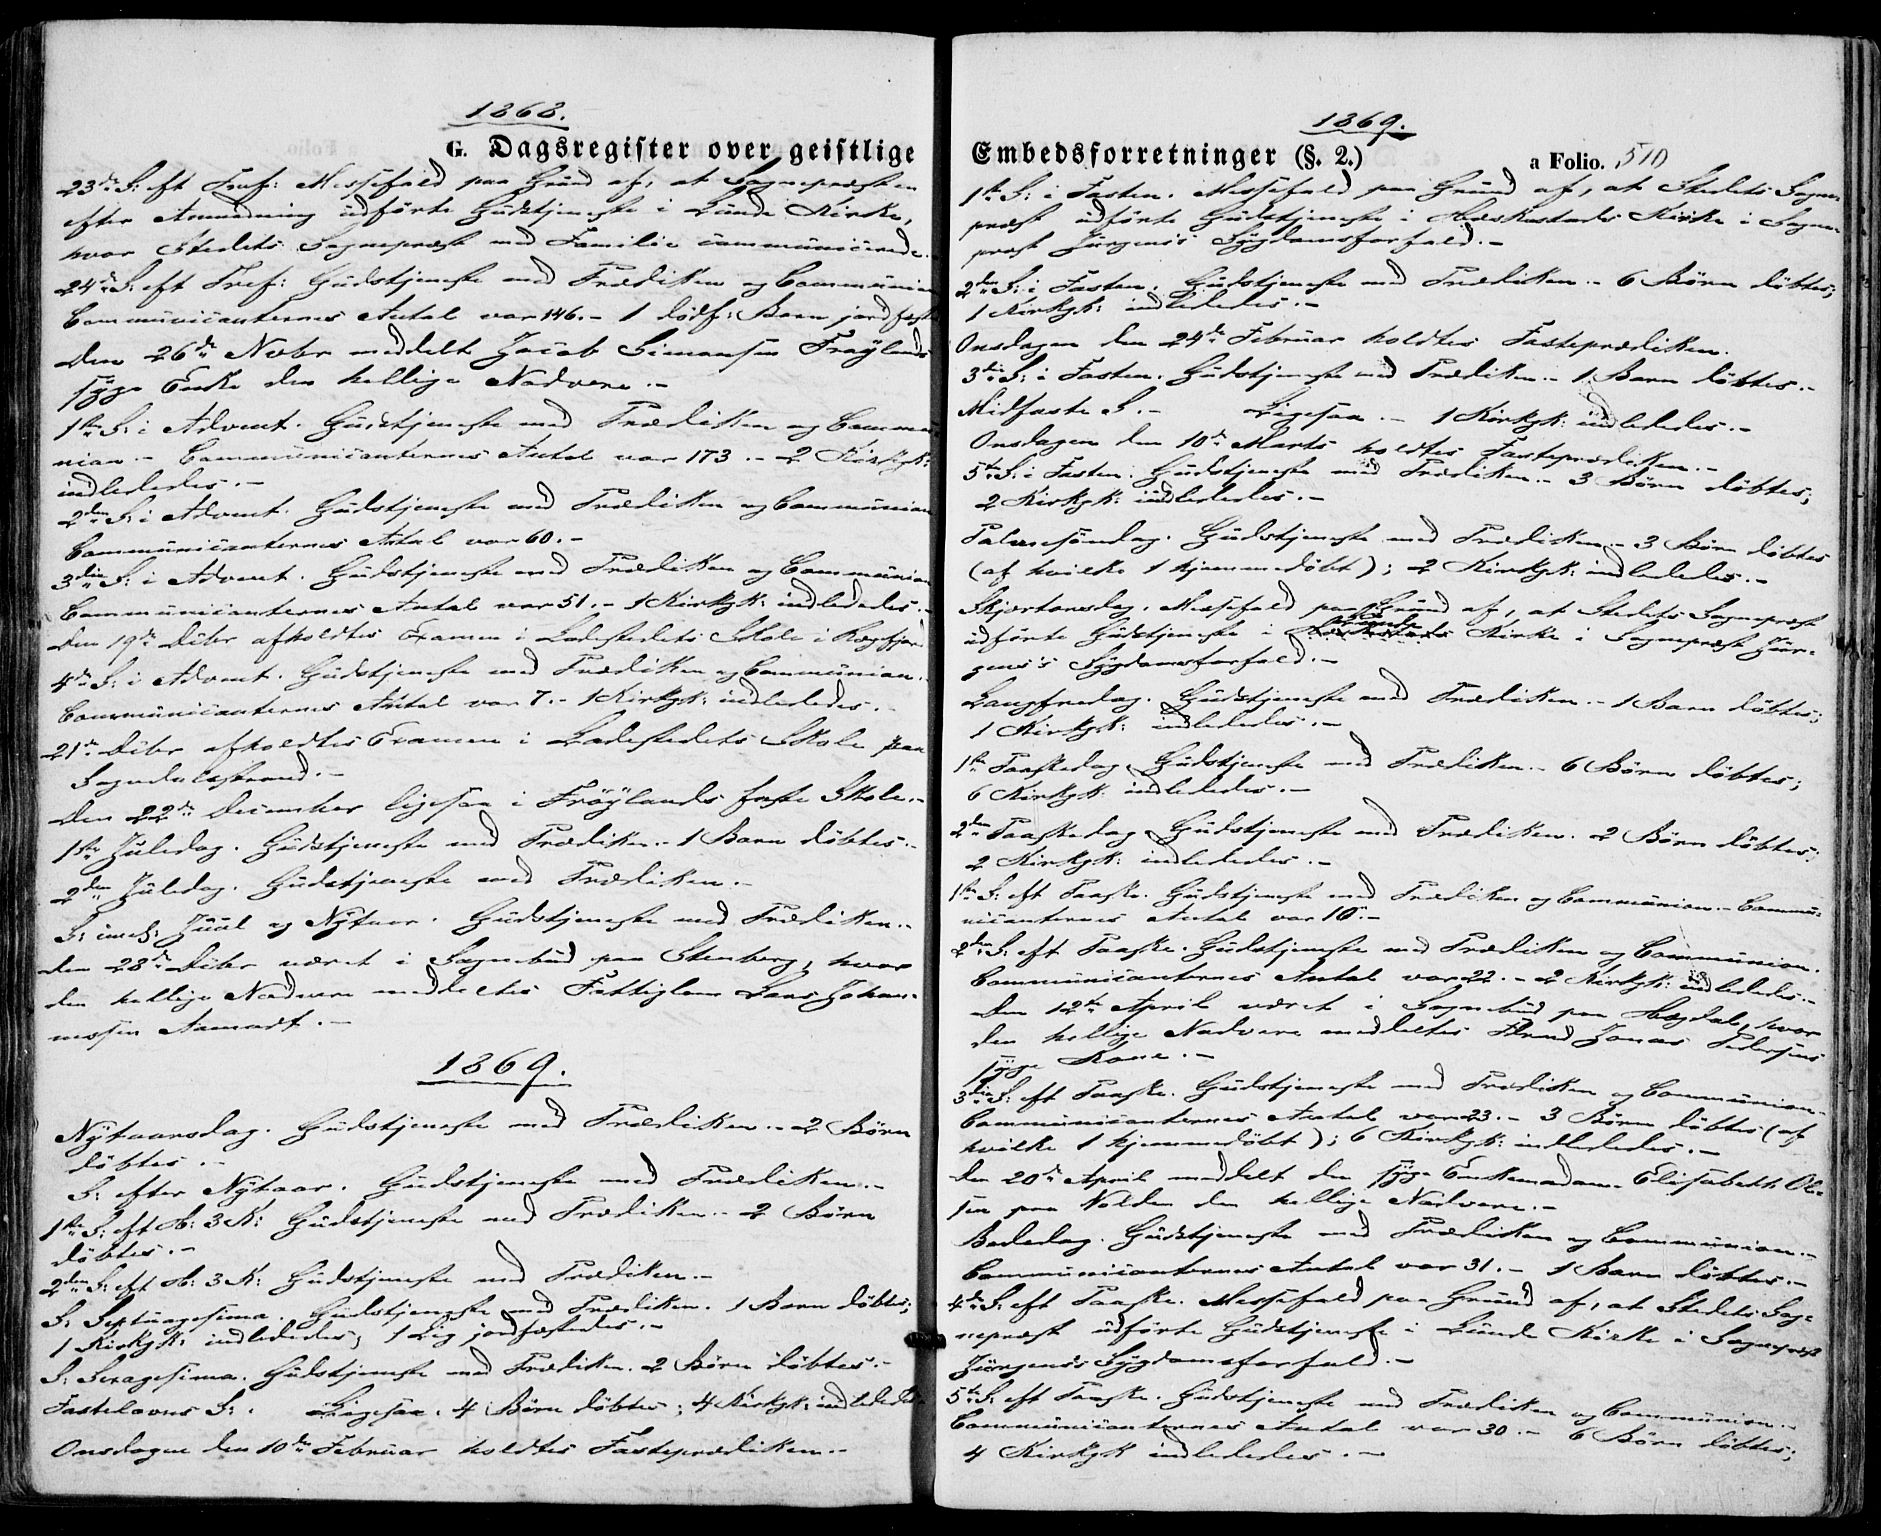 1868.
G. Dagsregister over geistlige
23de S: eft Tref: Messefald paa Grund af, at Sognepræsten
efter Anmodning udførte Gudstjeneste i Lunde Kirke,
hvor Stedets Sognepræst med Familie communicerede.
24de S: eft Tref: Gudstjeneste med Prædiken og Communion
Communicanternes Antal var 146. - 1 dødf: Barn jordfæst
Den 26de Novbr meddelt Jacob Simonsen Frøylands
syge Enke den hellige Nadvere. -
1ste S: i Advent. Gudstjeneste med Prædiken og Commu-
nion - Communicanternes Antal var 173. - 2 Kirkgk:
indlededes. -
2den S: i Advent. Gudstjeneste med Prædiken og Communion
Communicanternes Antal var 60. -
3die S: i Advent. Gudstjeneste med Prædiken og Communion
Communicanternes Antal var 51. - 1 Kirkgk: indlededes. -
Den 19de Decbr afholdtes Examen i Ladestedets Skole i Rægefjord
4de S: i Advent. Gudstjeneste med Prædiken og Communion. -
Communicanternes Antal var 7. - 1 Kirkgk: indlededes.
21de Decbr afholdtes Examen i Ladestedets Skole paa
Sogndalsstrand. -
Den 22de December ligesaa i Frøylands faste Skole. -
1ste Juledag. Gudstjeneste med Prædiken. - 1 Barn døbtes. -
2den Juledag. Gudstjeneste med Prædiken. -
S: imell: Juul og Nytaar. Gudstjeneste med Prædiken. -
Den 28de Decbr været i Sognebud paa Stenberg, hvor
den hellige Nadvere meddeltes Fattiglem Lars Johan-
nesen Aamodt. -
1869.
Nytaarsdag. Gudstjeneste med Prædiken. - 2 Børn
døbtes. -
S: efter Nytaar. Gudstjeneste med Prædiken. -
1ste S: eft H: 3 K: Gudstjeneste med Prædiken. - 2 Børn
døbtes. -
2den S: eft H: 3 K: Gudstjeneste med Prædiken. -
S: Septuagesima. Gudstjeneste med Prædiken. 1 Barn døbtes;
1 Kirkgk: indlededes; 1 Lig jordfæstedes. -
S: Sexagesima. Gudstjeneste med Prædiken. 2 Børn døbtes. -
Fastelavns S: . Ligesaa. 4 Børn døbtes; 4 Kirkgk: indlededes
Onsdagen den 10de Februar holdtes Fasteprædiken. -
1869.
Embedsforretninger (§. 2.) a Folio. 510
1ste S: i Fasten. Messefald paa Grund af, at Stedets Sogne-
præst udførte Gudstjeneste i Heskestads Kirke i Sogne-
præst Jürgens's Sygdomsforfald. -
2den S: i Fasten. Gudstjeneste med Prædiken. - 6 Børn døbtes;
1 Kirkgk: indlededes. -
Onsdagen den 24de Februar holdtes Fasteprædiken.
3die S: i Fasten. Gudstjeneste med Prædiken. - 1 Barn døbtes. -
Midfaste S. - Ligesaa. - 1 Kirkgk: indlededes. -
Onsdagen den 10de Marts holdtes Fasteprædiken. -
5te S: i Fasten. Gudstjeneste med Prædiken. - 3 Børn døbtes;
2 Kirkgk: indlededes. -
Palmesøndag. Gudstjeneste med Prædiken. - 3 Børn døbtes
(af hvilke 1 hjemmedøbt); 2 Kirkgk: indlededes. -
Skjærtorsdag. Messefald paa Grund af, at Stedets Sognepræst
udførte Gudstjeneste i Lunde Kirke i Sognepræst Jür-
gens's Sygdomsforfald. -
Langfredag. Gudstjeneste med Prædiken. - 1 Barn døbtes;
1 Kirkgk: indlededes. -
1ste Paaskedag. Gudstjeneste med Prædiken. - 6 Børn døbtes;
6 Kirkgk: indlededes. -
2den Paaskedag. Gudstjeneste med Prædiken. 2 Børn døbtes;
2 Kirkgk: indlededes. -
1ste S: eft Paaske. Gudstjeneste med Prædiken og Communion. - Commu-
nicanternes Antal var 10. -
2den S: eft Paaske. Gudstjeneste med Prædiken og Communion.
Communicanternes Antal var 22. - 2 Kirkgk: indlededes. -
Den 12te April været i Sognebud paa Hægdal, hvor
den hellige Nadvere meddeltes Jonas Pedersens
syge Kone. -
3die S: eft Paaske. Gudstjeneste med Prædiken og Communion. -
Communicanternes Antal var 23. - 3 Børn døbtes (af
hvilke 1 hjemmedøbt); 6 Kirkgk: indlededes. -
Den 20de April meddelt den syge Enkemadam Elisabeth Ol-
sen paa Volden den hellige Nadvere. -
Bededag. Gudstjeneste med Prædiken og Communion. -
Communicanternes Antal var 31. - 1 Barn døbtes. -
4de S: eft Paaske. Messefald paa Grund af, at Stedets Sog-
nepræst udførte Gudstjeneste i Lunde Kirke i Sognepræst
Jürgens's Sygdomsforfald. -
5te S: eft Paaske. Gudstjeneste med Prædiken og Communion. -
Communicanternes Antal var 30. - 6 Børn døbtes;
4 Kirkgk indlededes. -